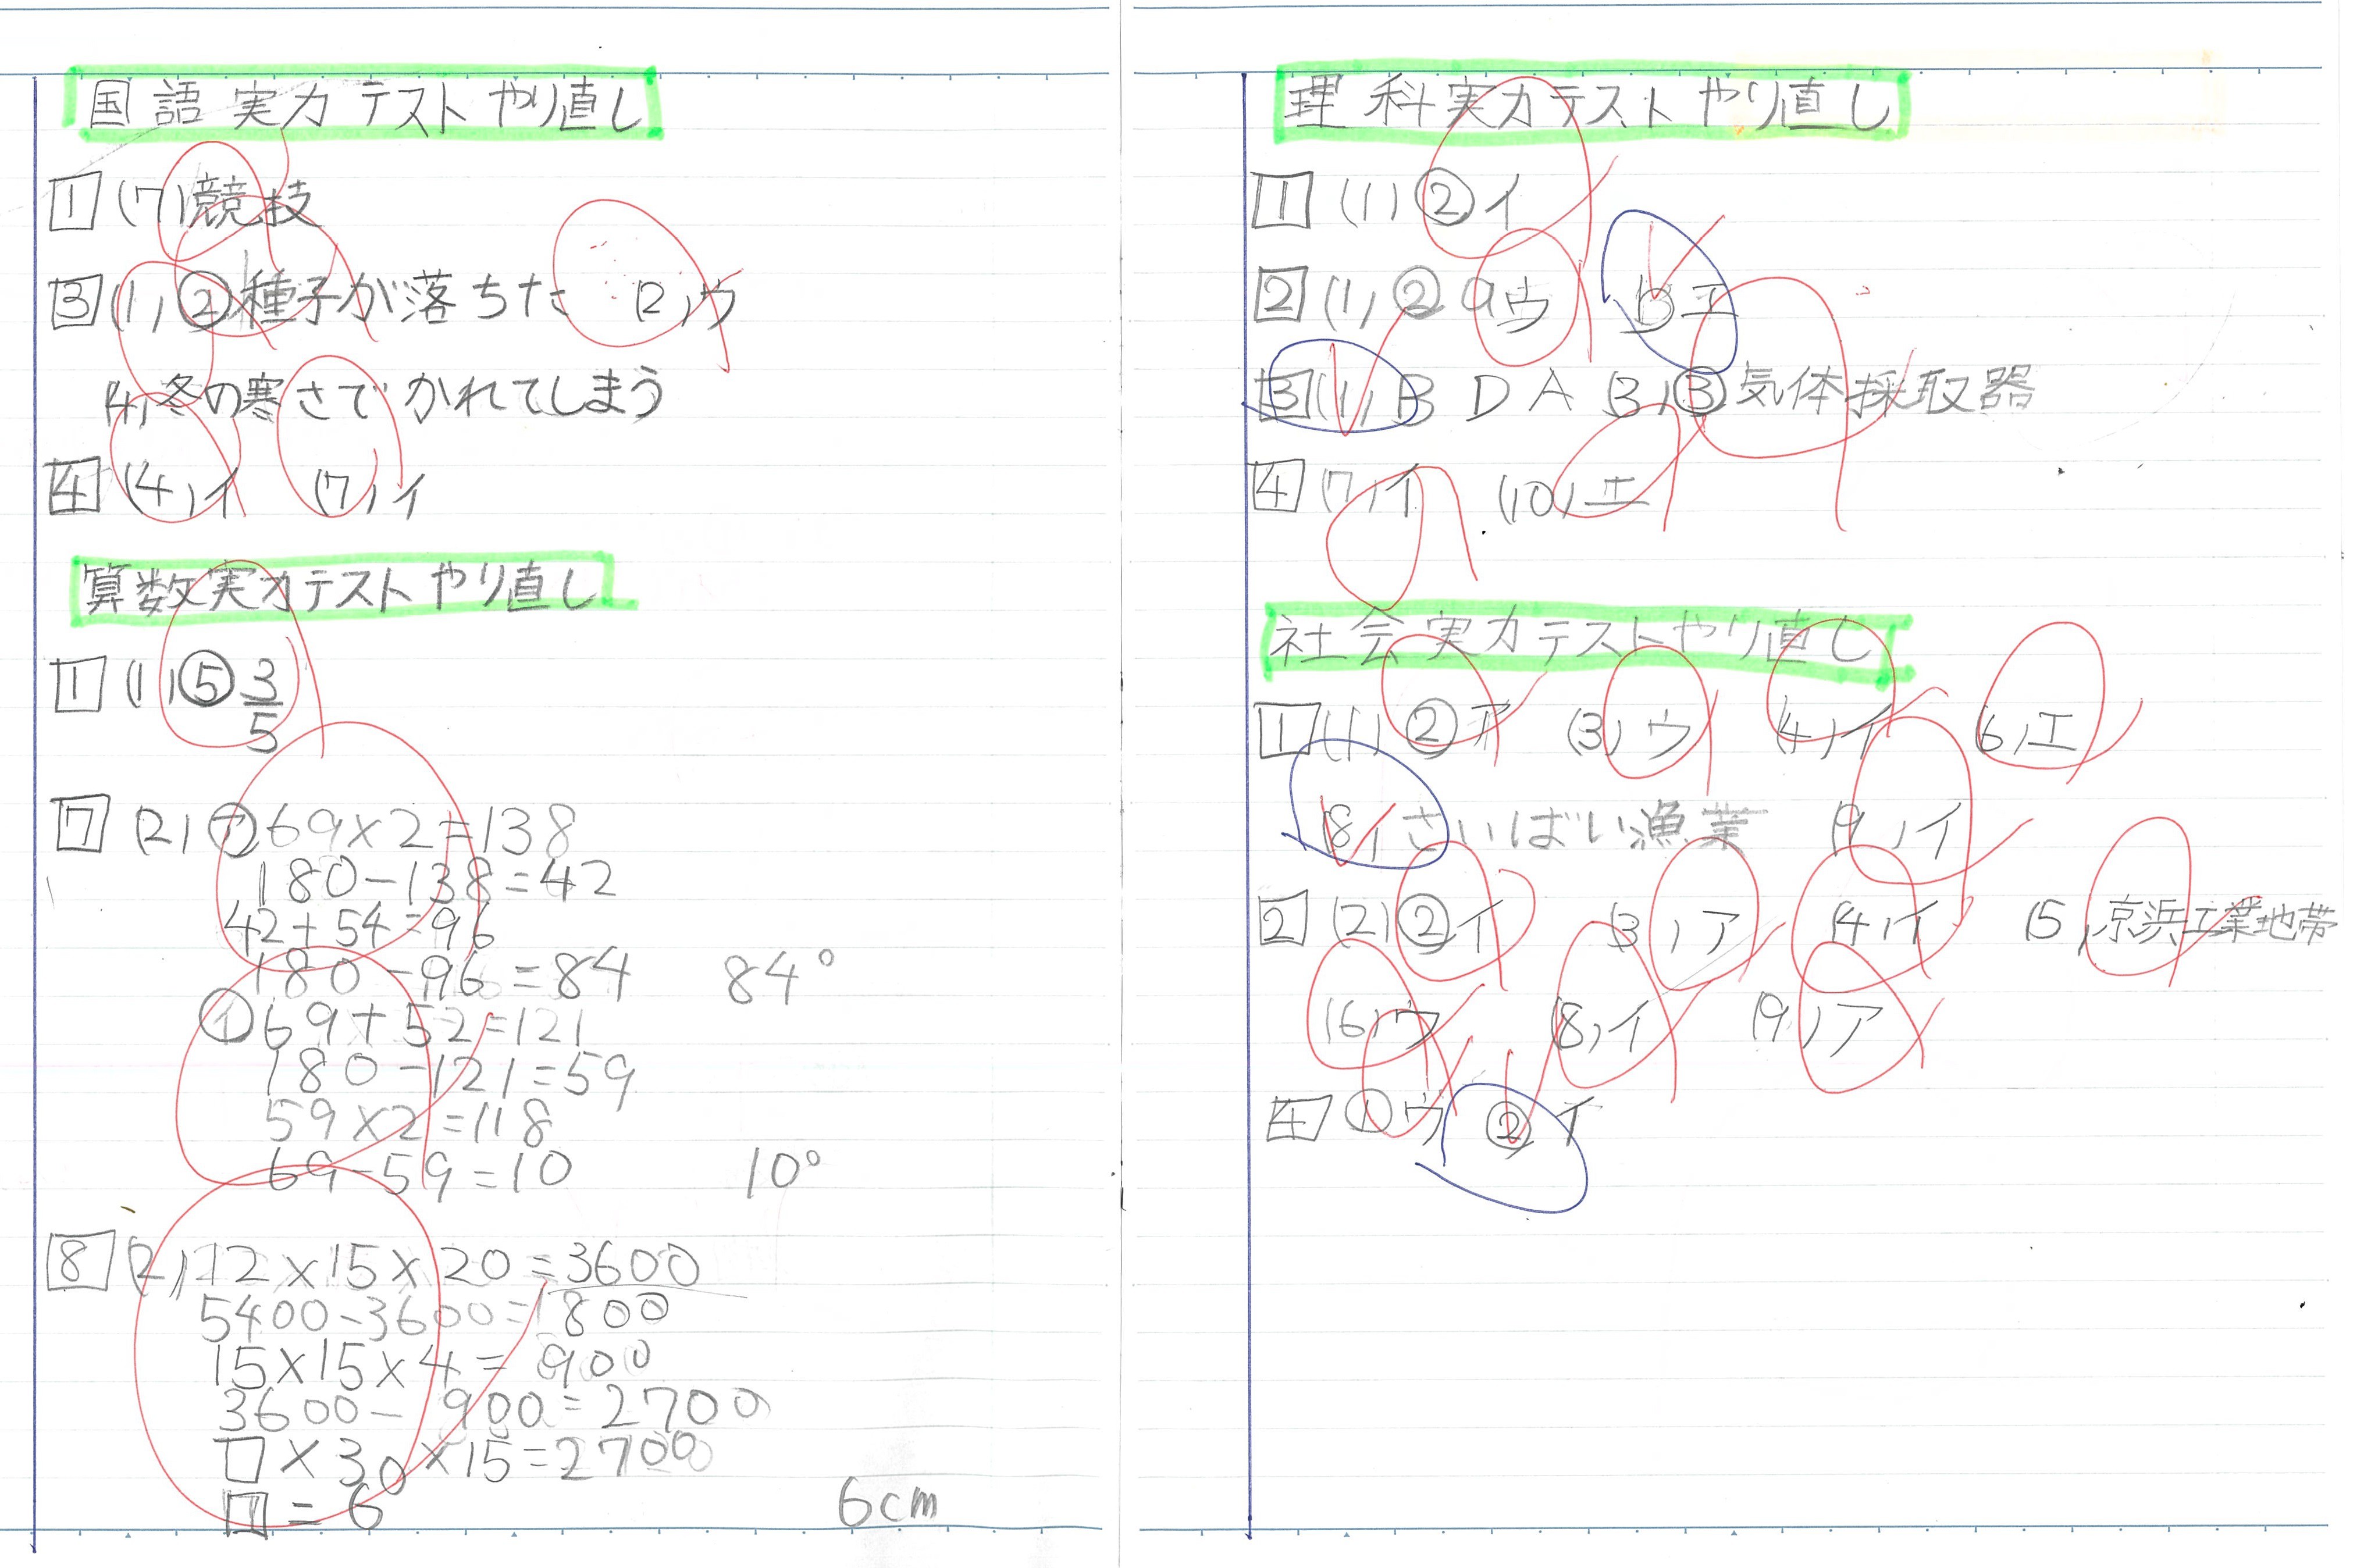 国語実力テストやり直し
1 (7)競技
3 (1)②種子が落ちた (2)ウ
(4)冬の寒さでかれてしまう
4 (4)イ (7)イ
算数実力テストやり直し
1 (1)⑤3/5
7 (2)㋐69×2=138
180-138=42
42+54=96
180-96=84 84°
㋑69+52=121
180-121=59
59×2=118
69-59=10 10°
8 (2)12×15×20=3600
5400-3600=1800
15×15×4=900
3600-900=2700
□×30×15=2700
□=6 6cm
理科実力テストやり直し
1 (1)②イ
2 (1)②aウ bエ
3 (1)B D A (3)③気体採取器
4 (7)イ (10)エ
社会実力テストやり直し
1 (1)②ア (3)ウ (4)イ (6)エ
(8)さいばい漁業 (9)イ
2 (2)②イ (3)ア (4)イ (5)京浜工業地帯
(6)ウ (8)イ (9)ア
4 ①ウ ②イ